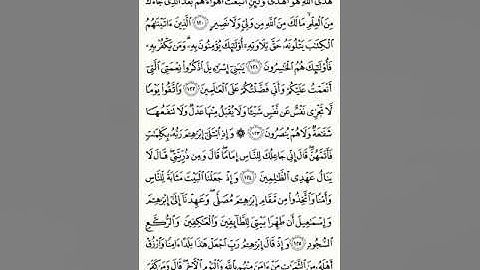 هُدَى ٱللَّهِ هُوَ ٱلْهُدَىٰ وَلَئِنِ ٱتَّبَعْتَ أَهْوَآءَهُم بَعْدَ ٱلَّذِى جَآءَكَ
مِنَ ٱلْعِلْمِ مَا لَكَ مِنَ ٱللَّهِ مِن وَلِىٍّ وَلَا نَصِيرٍ ١٢٠ ٱلَّذِينَ ءَاتَيْنَٰهُمُ
ٱلْكِتَٰبَ يَتْلُونَهُۥ حَقَّ تِلَاوَتِهِۦٓ أُو۟لَٰٓئِكَ يُؤْمِنُونَ بِهِۦ وَمَن يَكْفُرْ بِهِۦ
فَأُو۟لَٰٓئِكَ هُمُ ٱلْخَٰسِرُونَ ١٢١ يَٰبَنِىٓ إِسْرَٰٓءِيلَ ٱذْكُرُوا۟ نِعْمَتِىَ ٱلَّتِىٓ
أَنْعَمْتُ عَلَيْكُمْ وَأَنِّى فَضَّلْتُكُمْ عَلَى ٱلْعَٰلَمِينَ ١٢٢ وَٱتَّقُوا۟ يَوْمًا
لَّا تَجْزِى نَفْسٌ عَن نَّفْسٍ شَيْـًٔا وَلَا يُقْبَلُ مِنْهَا عَدْلٌ وَلَا تَنفَعُهَا
شَفَٰعَةٌ وَلَا هُمْ يُنصَرُونَ ١٢٣ ۞ وَإِذِ ٱبْتَلَىٰٓ إِبْرَٰهِـۧمَ رَبُّهُۥ بِكَلِمَٰتٍ
فَأَتَمَّهُنَّ قَالَ إِنِّى جَاعِلُكَ لِلنَّاسِ إِمَامًا قَالَ وَمِن ذُرِّيَّتِى قَالَ لَا
يَنَالُ عَهْدِى ٱلظَّٰلِمِينَ ١٢٤ وَإِذْ جَعَلْنَا ٱلْبَيْتَ مَثَابَةً لِّلنَّاسِ
وَأَمْنًا وَٱتَّخِذُوا۟ مِن مَّقَامِ إِبْرَٰهِـۧمَ مُصَلًّى وَعَهِدْنَآ إِلَىٰٓ إِبْرَٰهِـۧمَ
وَإِسْمَٰعِيلَ أَن طَهِّرَا بَيْتِىَ لِلطَّآئِفِينَ وَٱلْعَٰكِفِينَ وَٱلرُّكَّعِ
ٱلسُّجُودِ ١٢٥ وَإِذْ قَالَ إِبْرَٰهِـۧمُ رَبِّ ٱجْعَلْ هَٰذَا بَلَدًا ءَامِنًا وَٱرْزُقْ
أَهْلَهُۥ مِنَ ٱلثَّمَرَٰتِ مَنْ ءَامَنَ مِنْهُم بِٱللَّهِ وَٱلْيَوْمِ ٱلْءَاخِرِ قَالَ وَمَن كَفَرَ